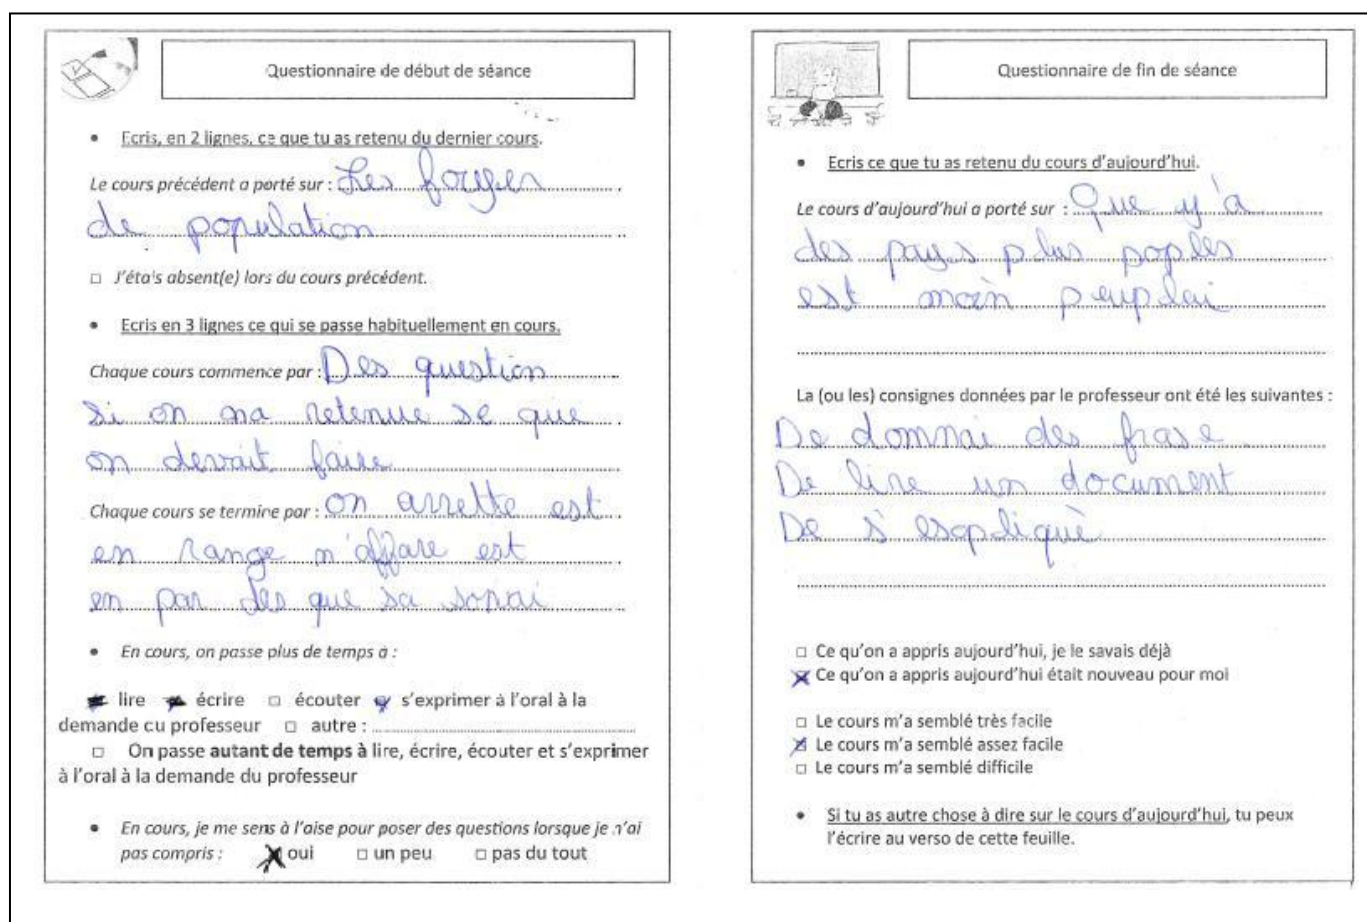 Questionnaire de début de séance
• Ecris, en 2 lignes, ce que tu as retenu du dernier cours.
Le cours précédent a porté sur : Les foyers
de population
□ J'étais absent(e) lors du cours précédent.
• Ecris en 3 lignes ce qui se passe habituellement en cours.
Chaque cours commence par : Des question
si on na retenue se que
on devait faire
Chaque cours se termine par : on arrette est
en range n'affare est
en par des que sa sonai
• En cours, on passe plus de temps à :
☒ lire ☒ écrire □ écouter ☒ s'exprimer à l'oral à la
demande du professeur □ autre :
□ On passe autant de temps à lire, écrire, écouter et s'exprimer
à l'oral à la demande du professeur
• En cours, je me sens à l'aise pour poser des questions lorsque je n'ai
pas compris : ☒ oui □ un peu □ pas du tout
Questionnaire de fin de séance
• Ecris ce que tu as retenu du cours d'aujourd'hui.
Le cours d'aujourd'hui a porté sur : Que y'a
des payes plus poples
est moin peuplai
La (ou les) consignes données par le professeur ont été les suivantes :
De domnai des frase
De lire un document
De s'esopliquè
□ Ce qu'on a appris aujourd'hui, je le savais déjà
☒ Ce qu'on a appris aujourd'hui était nouveau pour moi
□ Le cours m'a semblé très facile
☒ Le cours m'a semblé assez facile
□ Le cours m'a semblé difficile
• Si tu as autre chose à dire sur le cours d'aujourd'hui, tu peux
l'écrire au verso de cette feuille.